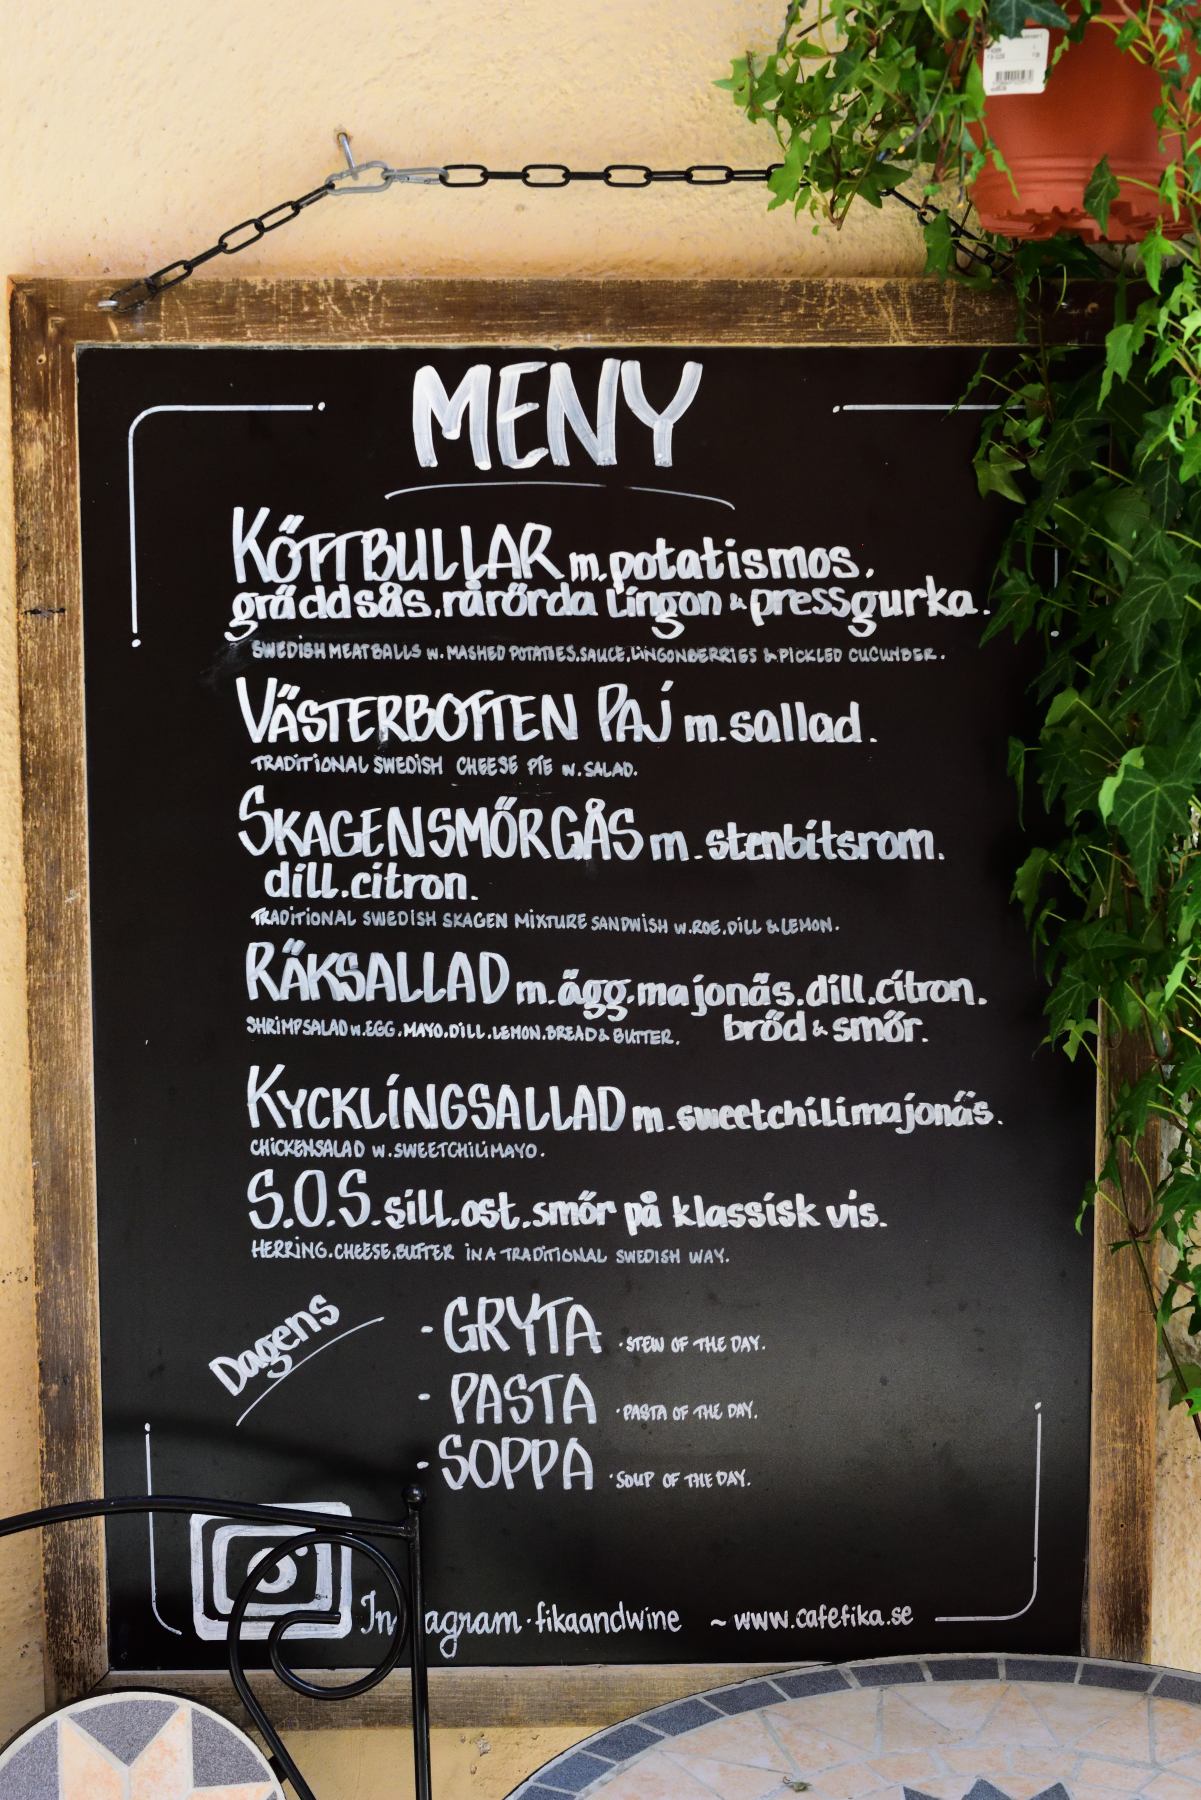 MENY
KÖTTBULLAR m.potatismos.
gräddsås.rårörda lingon & pressgurka.
SWEDISH MEATBALLS w. MASHED POTATOES.SAUCE.LINGONBERRIES & PICKLED CUCUMBER.
VÄSTERBOTTEN PAJ m.sallad.
TRADITIONAL SWEDISH CHEESE PIE w.SALAD.
SKAGENSMÖRGÅS m.stenbitsrom.
dill.citron.
TRADITIONAL SWEDISH SKAGEN MIXTURE SANDWISH w.ROE.DILL & LEMON.
RÄKSALLAD m.ägg.majonäs.dill.citron.
bröd & smör.
SHRIMPSALAD w.EGG.MAYO.DILL.LEMON.BREAD & BUTTER.
KYCKLINGSALLAD m.sweetchilimajonäs.
CHICKENSALAD w.SWEETCHILIMAYO.
S.O.S.sill.ost.smör på klassisk vis.
HERRING.CHEESE.BUTTER IN A TRADITIONAL SWEDISH WAY.
Dagens
- GRYTA · STEW OF THE DAY.
- PASTA · PASTA OF THE DAY.
- SOPPA · SOUP OF THE DAY.
Instagram · fikaandwine ~ www.cafefika.se